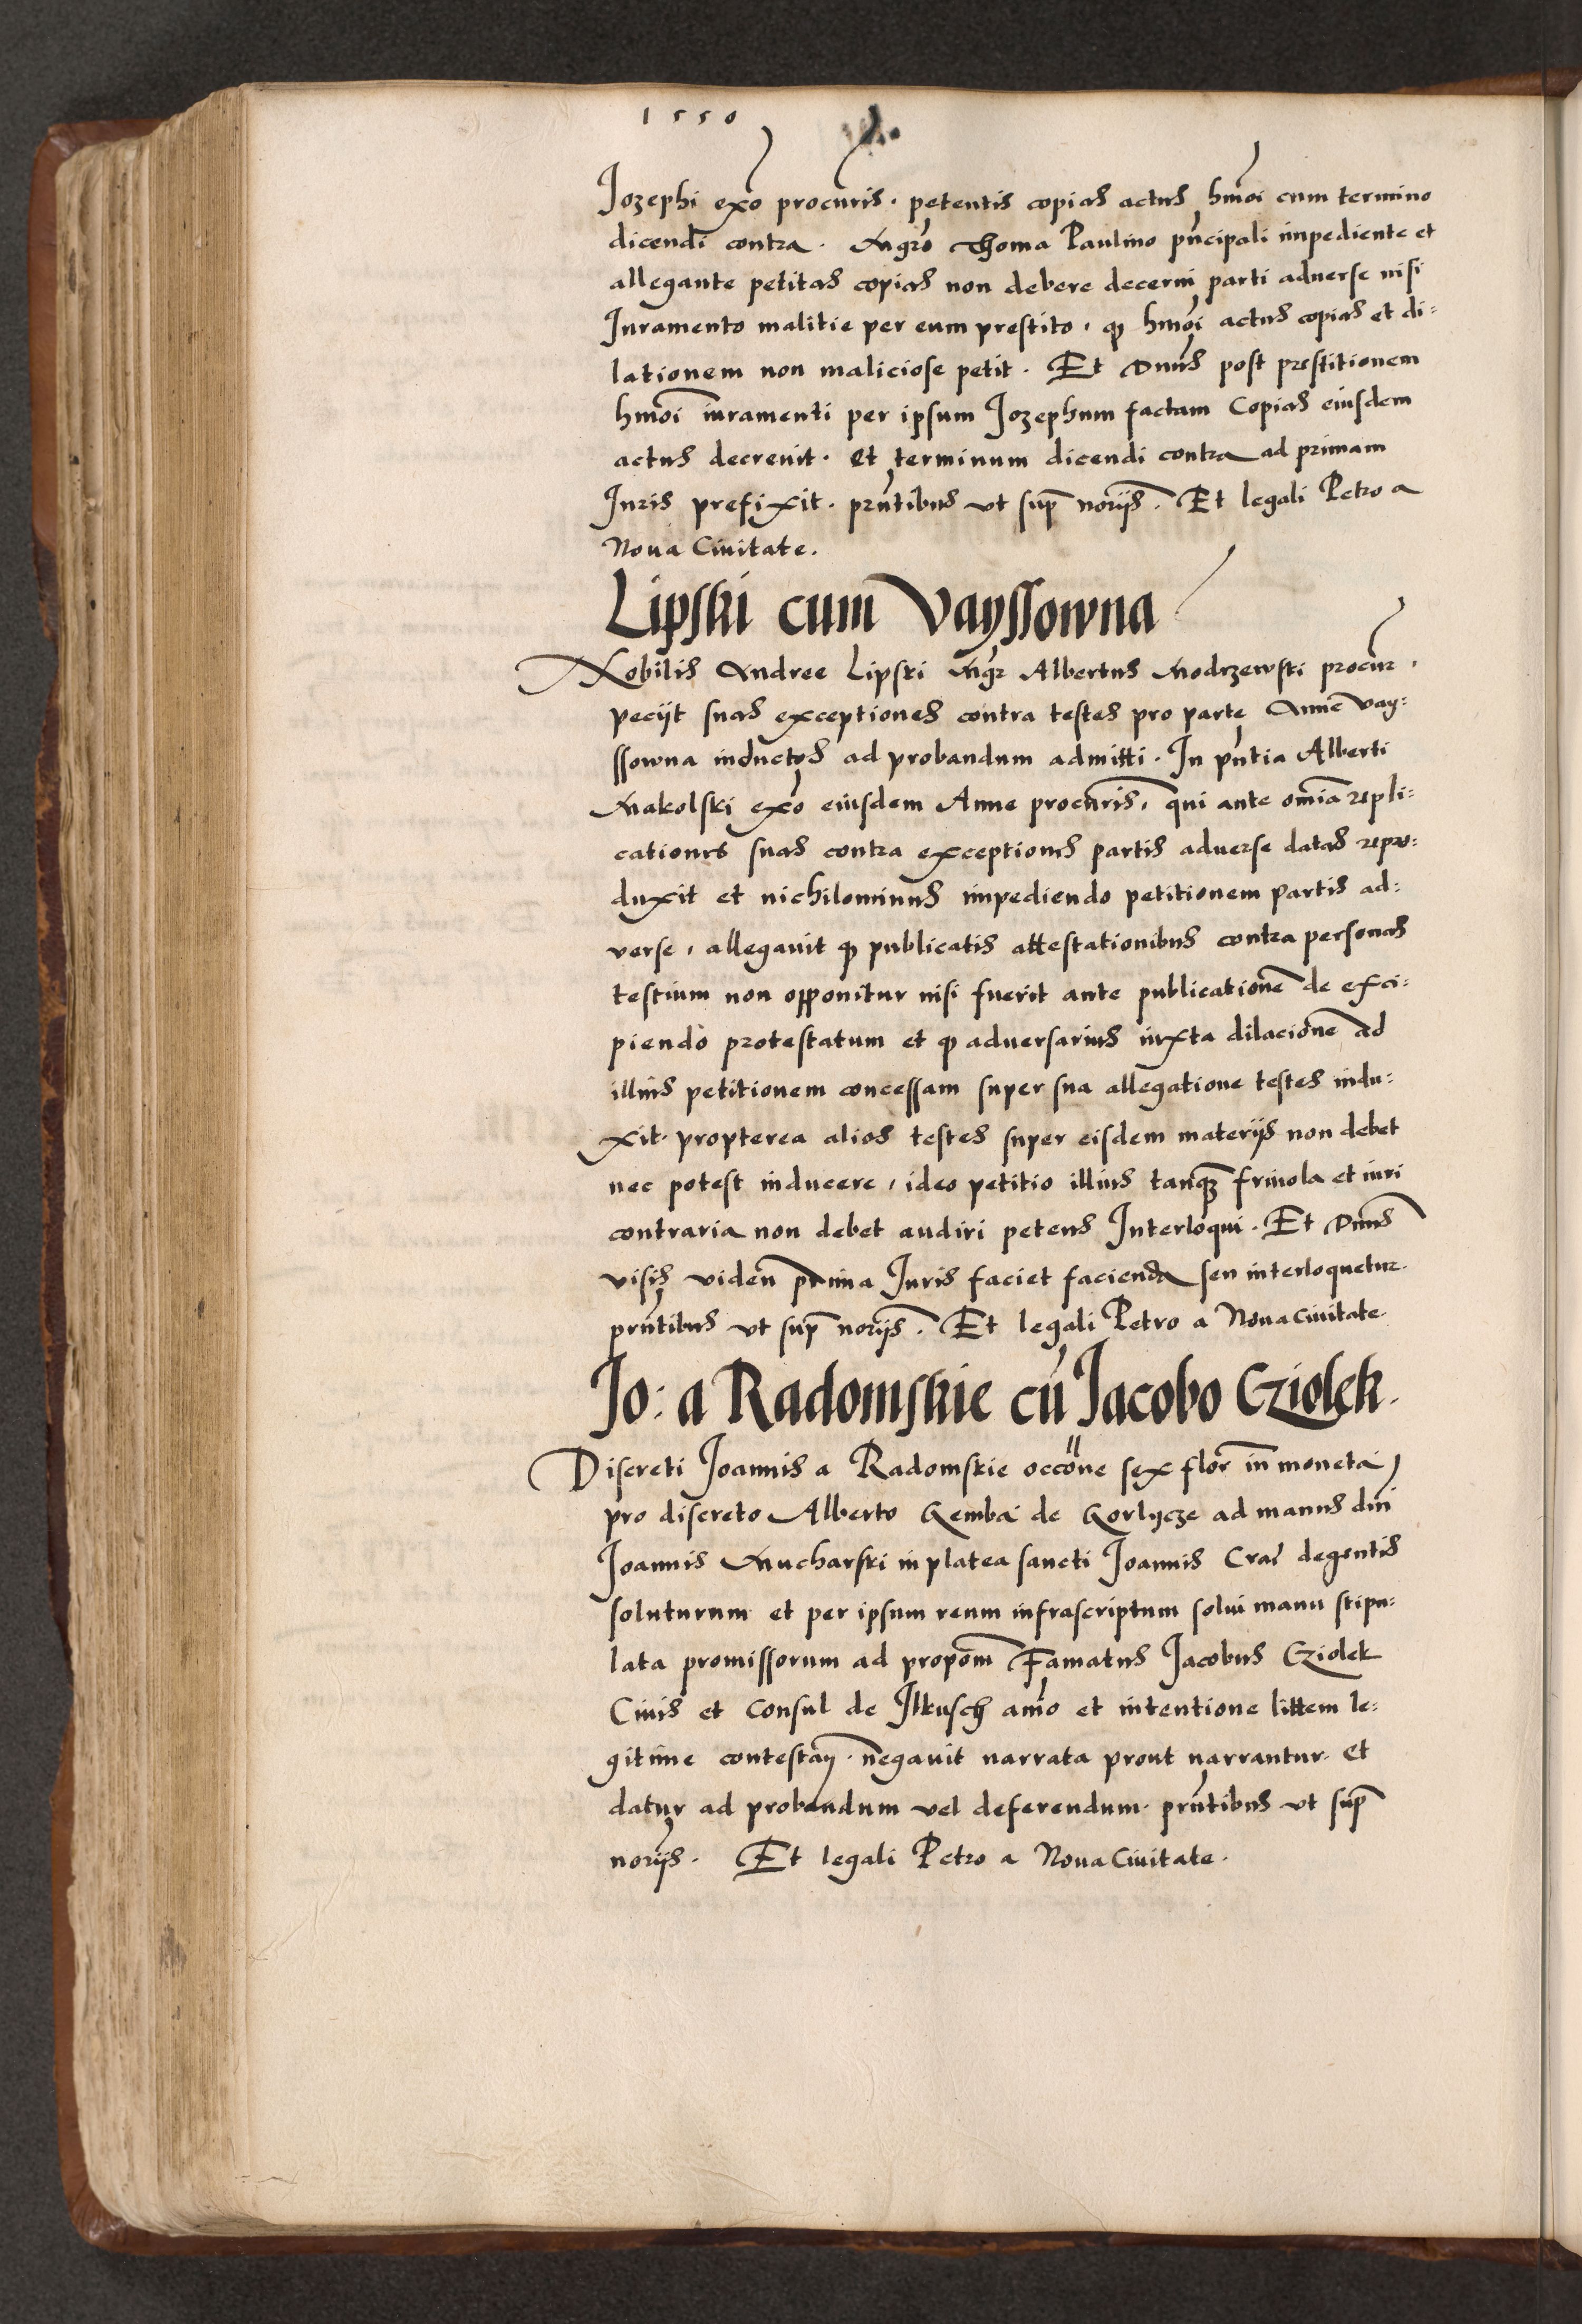 1550
Jozephi exo procuris. petentis copias actus hmoi cum termino
dicendi contra. Mgro Thoma Paulino pncipali impediente et
allegante petitas copias non debere decerni parti aduerse nisi
Juramento malitie per eum prestito, qp hmoi actus copias et di=
lationem non maliciose petit. Et Dnus post prestitionem
hmoi iuramenti per ipsum Jozephum factam Copias eiusdem
actus decreuit. et terminum dicendi contra ad primam
Juris prefixit. pntibus vt sup norijs. Et legali Petro a
Noua Ciuitate.
Lipski cum Vayssowna
Nobilis Andree Lipski Mgr Albertus Modrzewski procur,
pecijt suas exceptiones contra testes pro parte Anne Vay=
ssowna inductos ad probandum admitti. In pntia Alberti
Makolski exo eiusdem Anne procuris, qui ante omia repli=
cationes suas contra exceptiones partis aduerse datas repro=
duxit et nichilominus impediendo petitionem partis ad=
verse, allegauit qp publicatis attestationibus contra personas
testium non opponitur nisi fuerit ante publicatione de exci=
piendo protestatum et qp aduersarius iuxta dilacione ad
illius petitionem concessam super sua allegatione testes indu=
xit. propterea alios testes super eisdem materijs non debet
nec potest inducere, ideo petitio illius tanq friuola et iuri
contraria non debet audiri petens Interloqui. Et Dnus
visis viden prima Juris faciet facienda seu interloquetur.
pntibus vt sup norijs. Et legali Petro a Noua Ciuitate.
Jo: a Radomskie cu Jacobo Cziolek.
Discreti Joannis a Radomskie occone sex flor in moneta
pro discreto Alberto Gemba de Gorlycze ad manus dni
Joannis Mucharski in platea sancti Joannis Cra degentis
soluturum et per ipsum reum infrascriptum solui manu stipu=
lata promissorum ad propom Famatus Jacobus Cziolek
Ciuis et Consul de Ilkusch amo et intentione littem le=
gitime contestan. negauit narrata prout narrantur. et
datur ad probandum vel deferendum. pntibus vt sup
norijs. Et legali Petro a Noua Ciuitate.